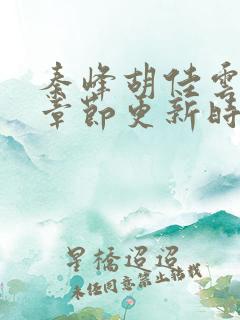 秦峰胡佳雲
章節更新時
星橋迢迢
未經同意禁止轉載